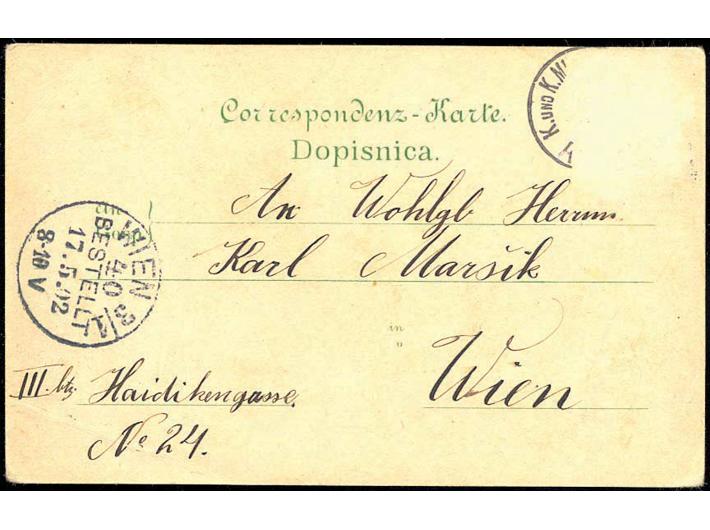 K. UND K. MI
Correspondenz-Karte.
Dopisnica.
An Wohlgb Herrn
Karl Maršik
in
"
Wien
WIEN 3/1
40
BESTELLT
17.5.02
8-10 V
III. btz Haidikengasse.
No 24.